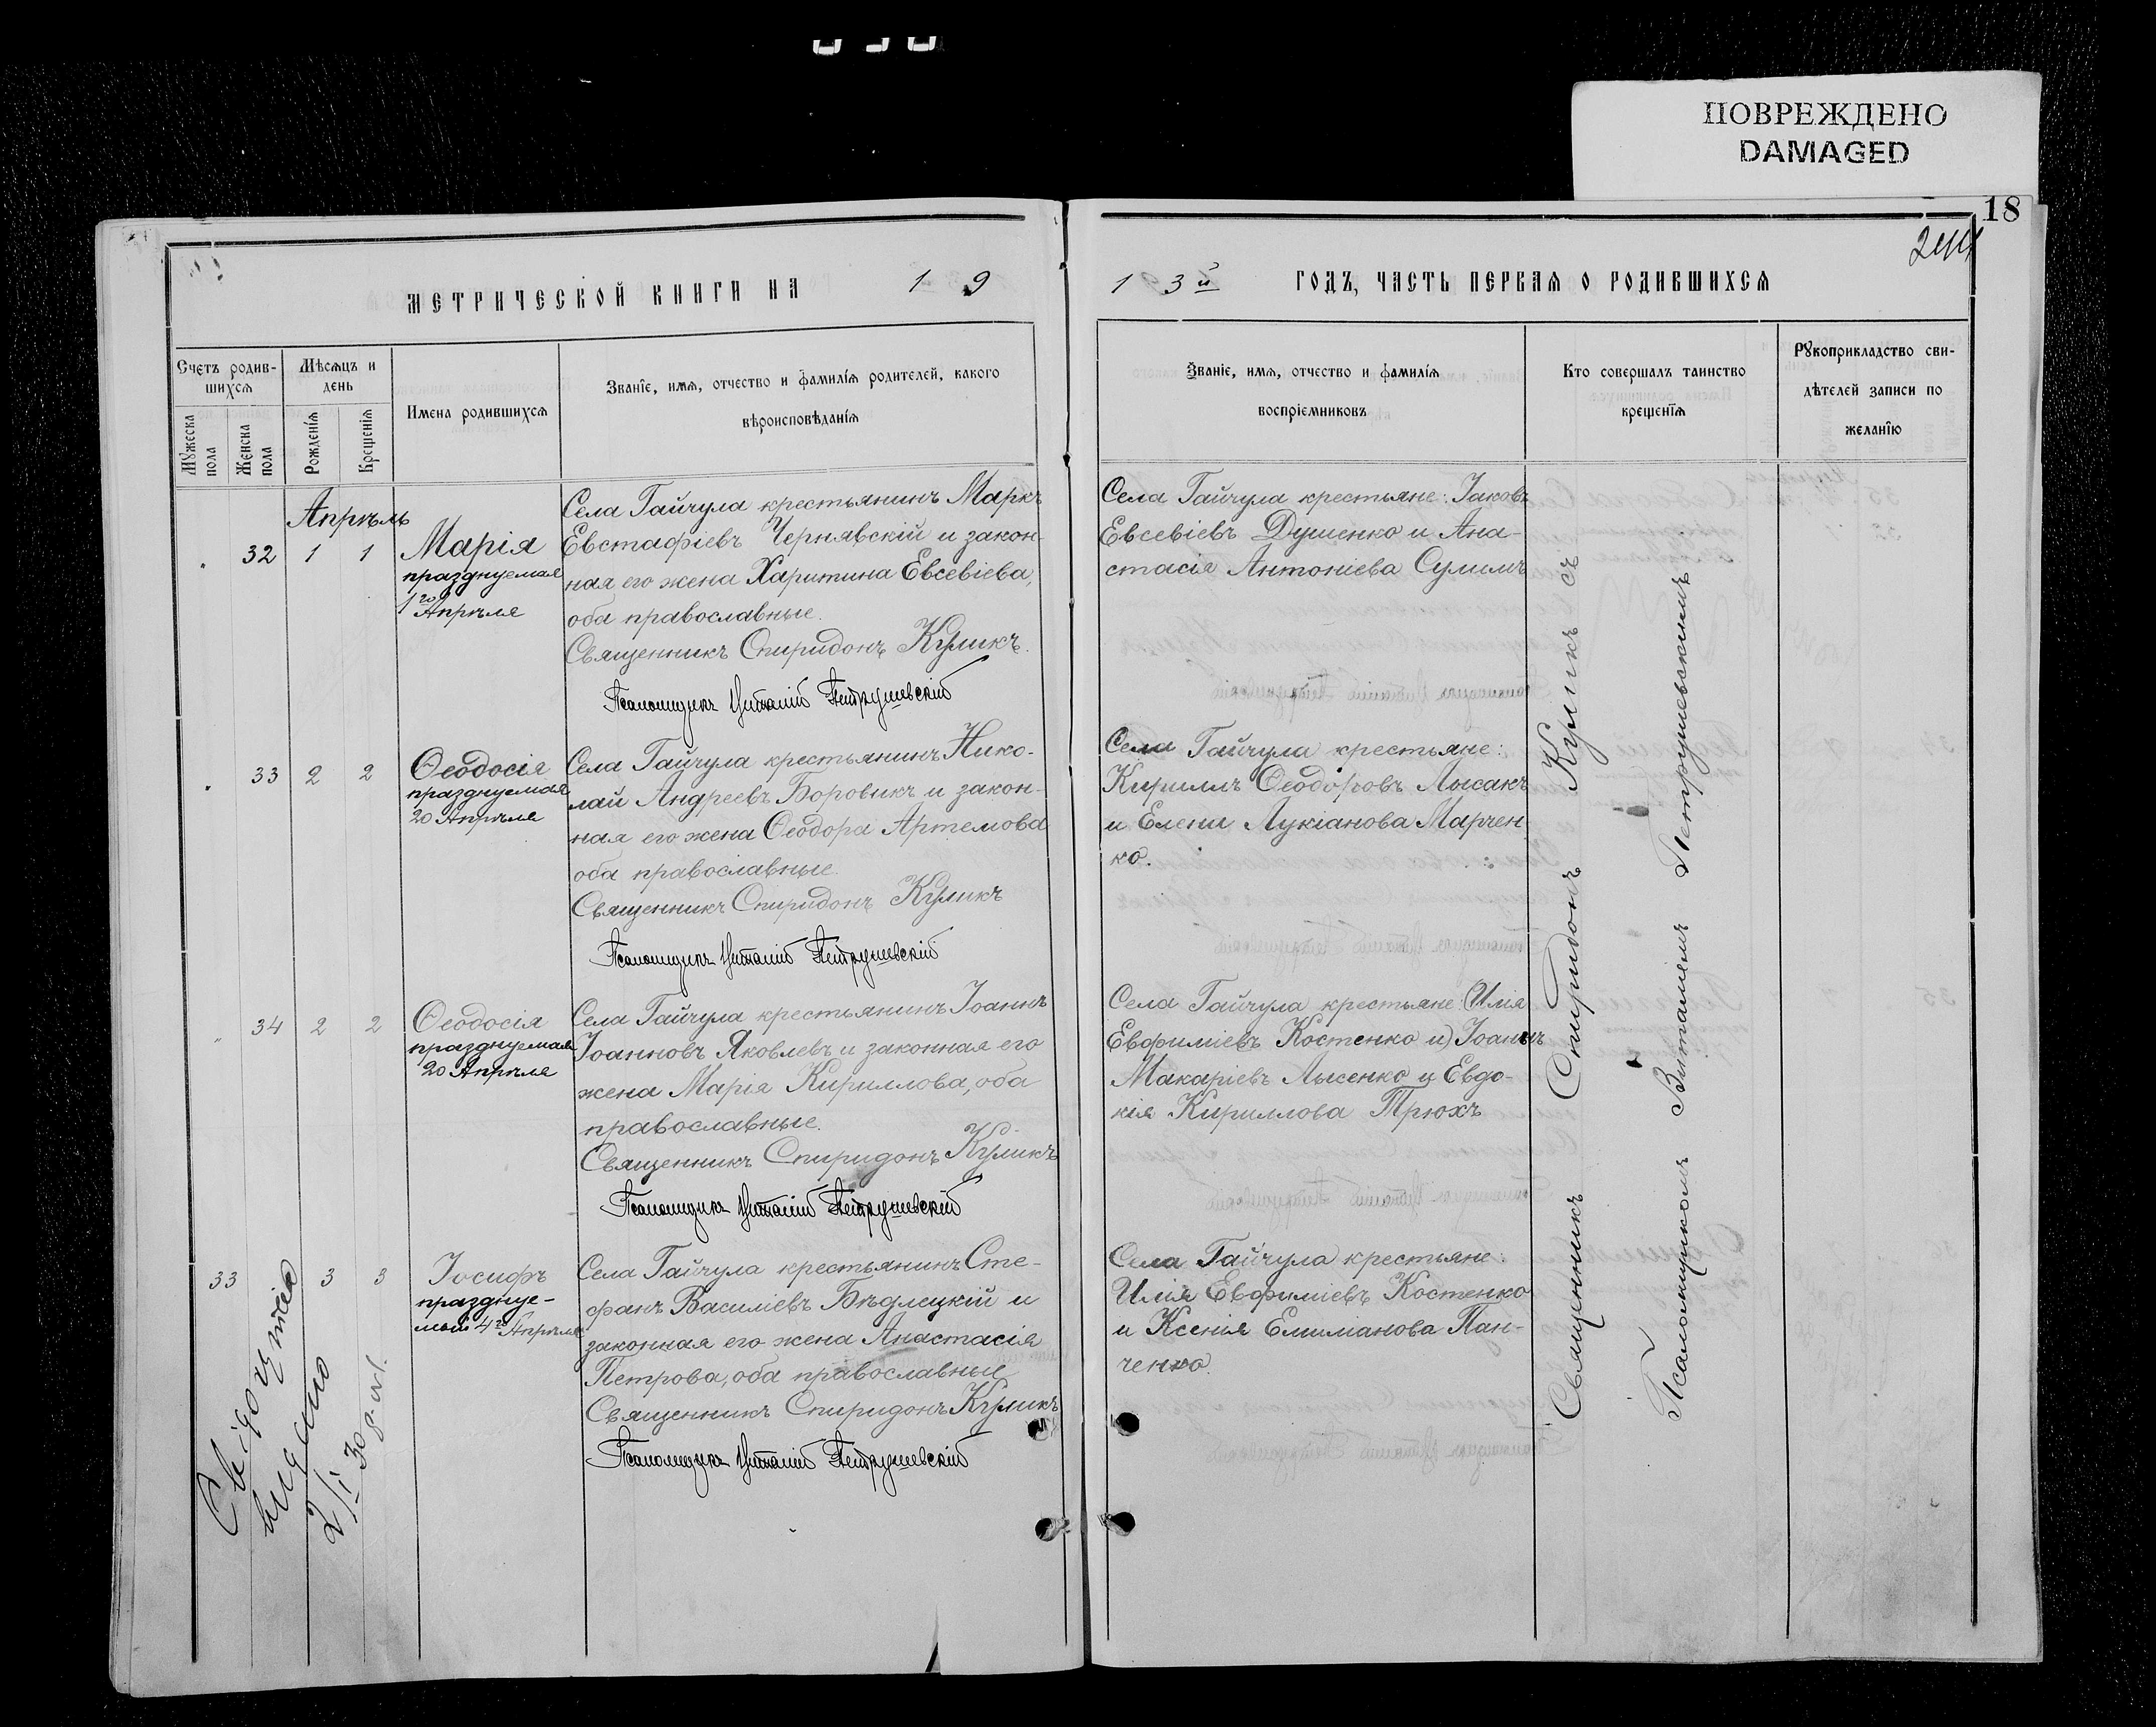 ПОВРЕЖДЕНО
DAMAGED
18
МЕТРИЧЕСКОЙ КНИГИ НА 1 9
1 3й ГОДЪ, ЧАСТЬ ПЕРВАЯ О РОДИВШИХСЯ
Счетъ родив-
шихся
Мѣсяцъ и
день
Мужеска
пола
Женска
пола
Рожденія
Крещенія
Имена родившихся
Званіе, имя, отчество и фамилія родителей, какого
вѣроисповѣданія
Званіе, имя, отчество и фамилія
воспріемниковъ
Кто совершалъ таинство
крещенія
Рукоприкладство сви-
дѣтелей записи по
желанію
Апрѣль
32 1 1
Марія
празднуемая
1го Апрѣля
Села Гайчула крестьянинъ Маркъ
Евстафіевъ Чернявскій и закон-
ная его жена Харитина Евсевіева,
оба православные.
Священникъ Спиридонъ Куликъ.
Псаломщикъ Виталій Петрушевскій
Села Гайчула крестьяне: Іаковъ
Евсевіевъ Душенко и Ана-
стасія Антоніева Сулимъ
33 2 2
Ѳеодосія
празднуемая
20 Апрѣля
Села Гайчула крестьянинъ Нико-
лай Андреевъ Боровикъ и закон-
ная его жена Ѳеодора Артемова
оба православные.
Священникъ Спиридонъ Куликъ
Псаломщикъ Виталій Петрушевскій
Села Гайчула крестьяне:
Кириллъ Ѳеодоровъ Лысакъ
и Елена Лукіанова Марчен
ко.
34 2 2
Ѳеодосія
празднуемая
20 Апрѣля
Села Гайчула крестьянинъ Іоаннъ
Іоанновъ Яковлевъ и законная его
жена Марія Кириллова, оба
православные.
Священникъ Спиридонъ Куликъ
Псаломщикъ Виталій Петрушевскій
Села Гайчула крестьяне: (Илія
Евфиміевъ Костенко и) Іоаннъ
Макаріевъ Лысенко и Евдо-
кія Кириллова Трюхъ
33 3 3
Іосифъ
праздную-
мый 4го Апрѣля
Села Гайчула крестьянинъ Сте-
фанъ Василіевъ Бѣдлецкій и
законная его жена Анастасія
Петрова, оба православные
Священникъ Спиридонъ Куликъ
Псаломщикъ Виталій Петрушевскій
Села Гайчула крестьяне:
Илія Евфиміевъ Костенко
и Ксенія Емиліанова Пан-
ченко.
Священникъ Спиридонъ Куликъ съ
Псаломщикомъ Виталіемъ Петрушевскимъ.
видано
2/I 30